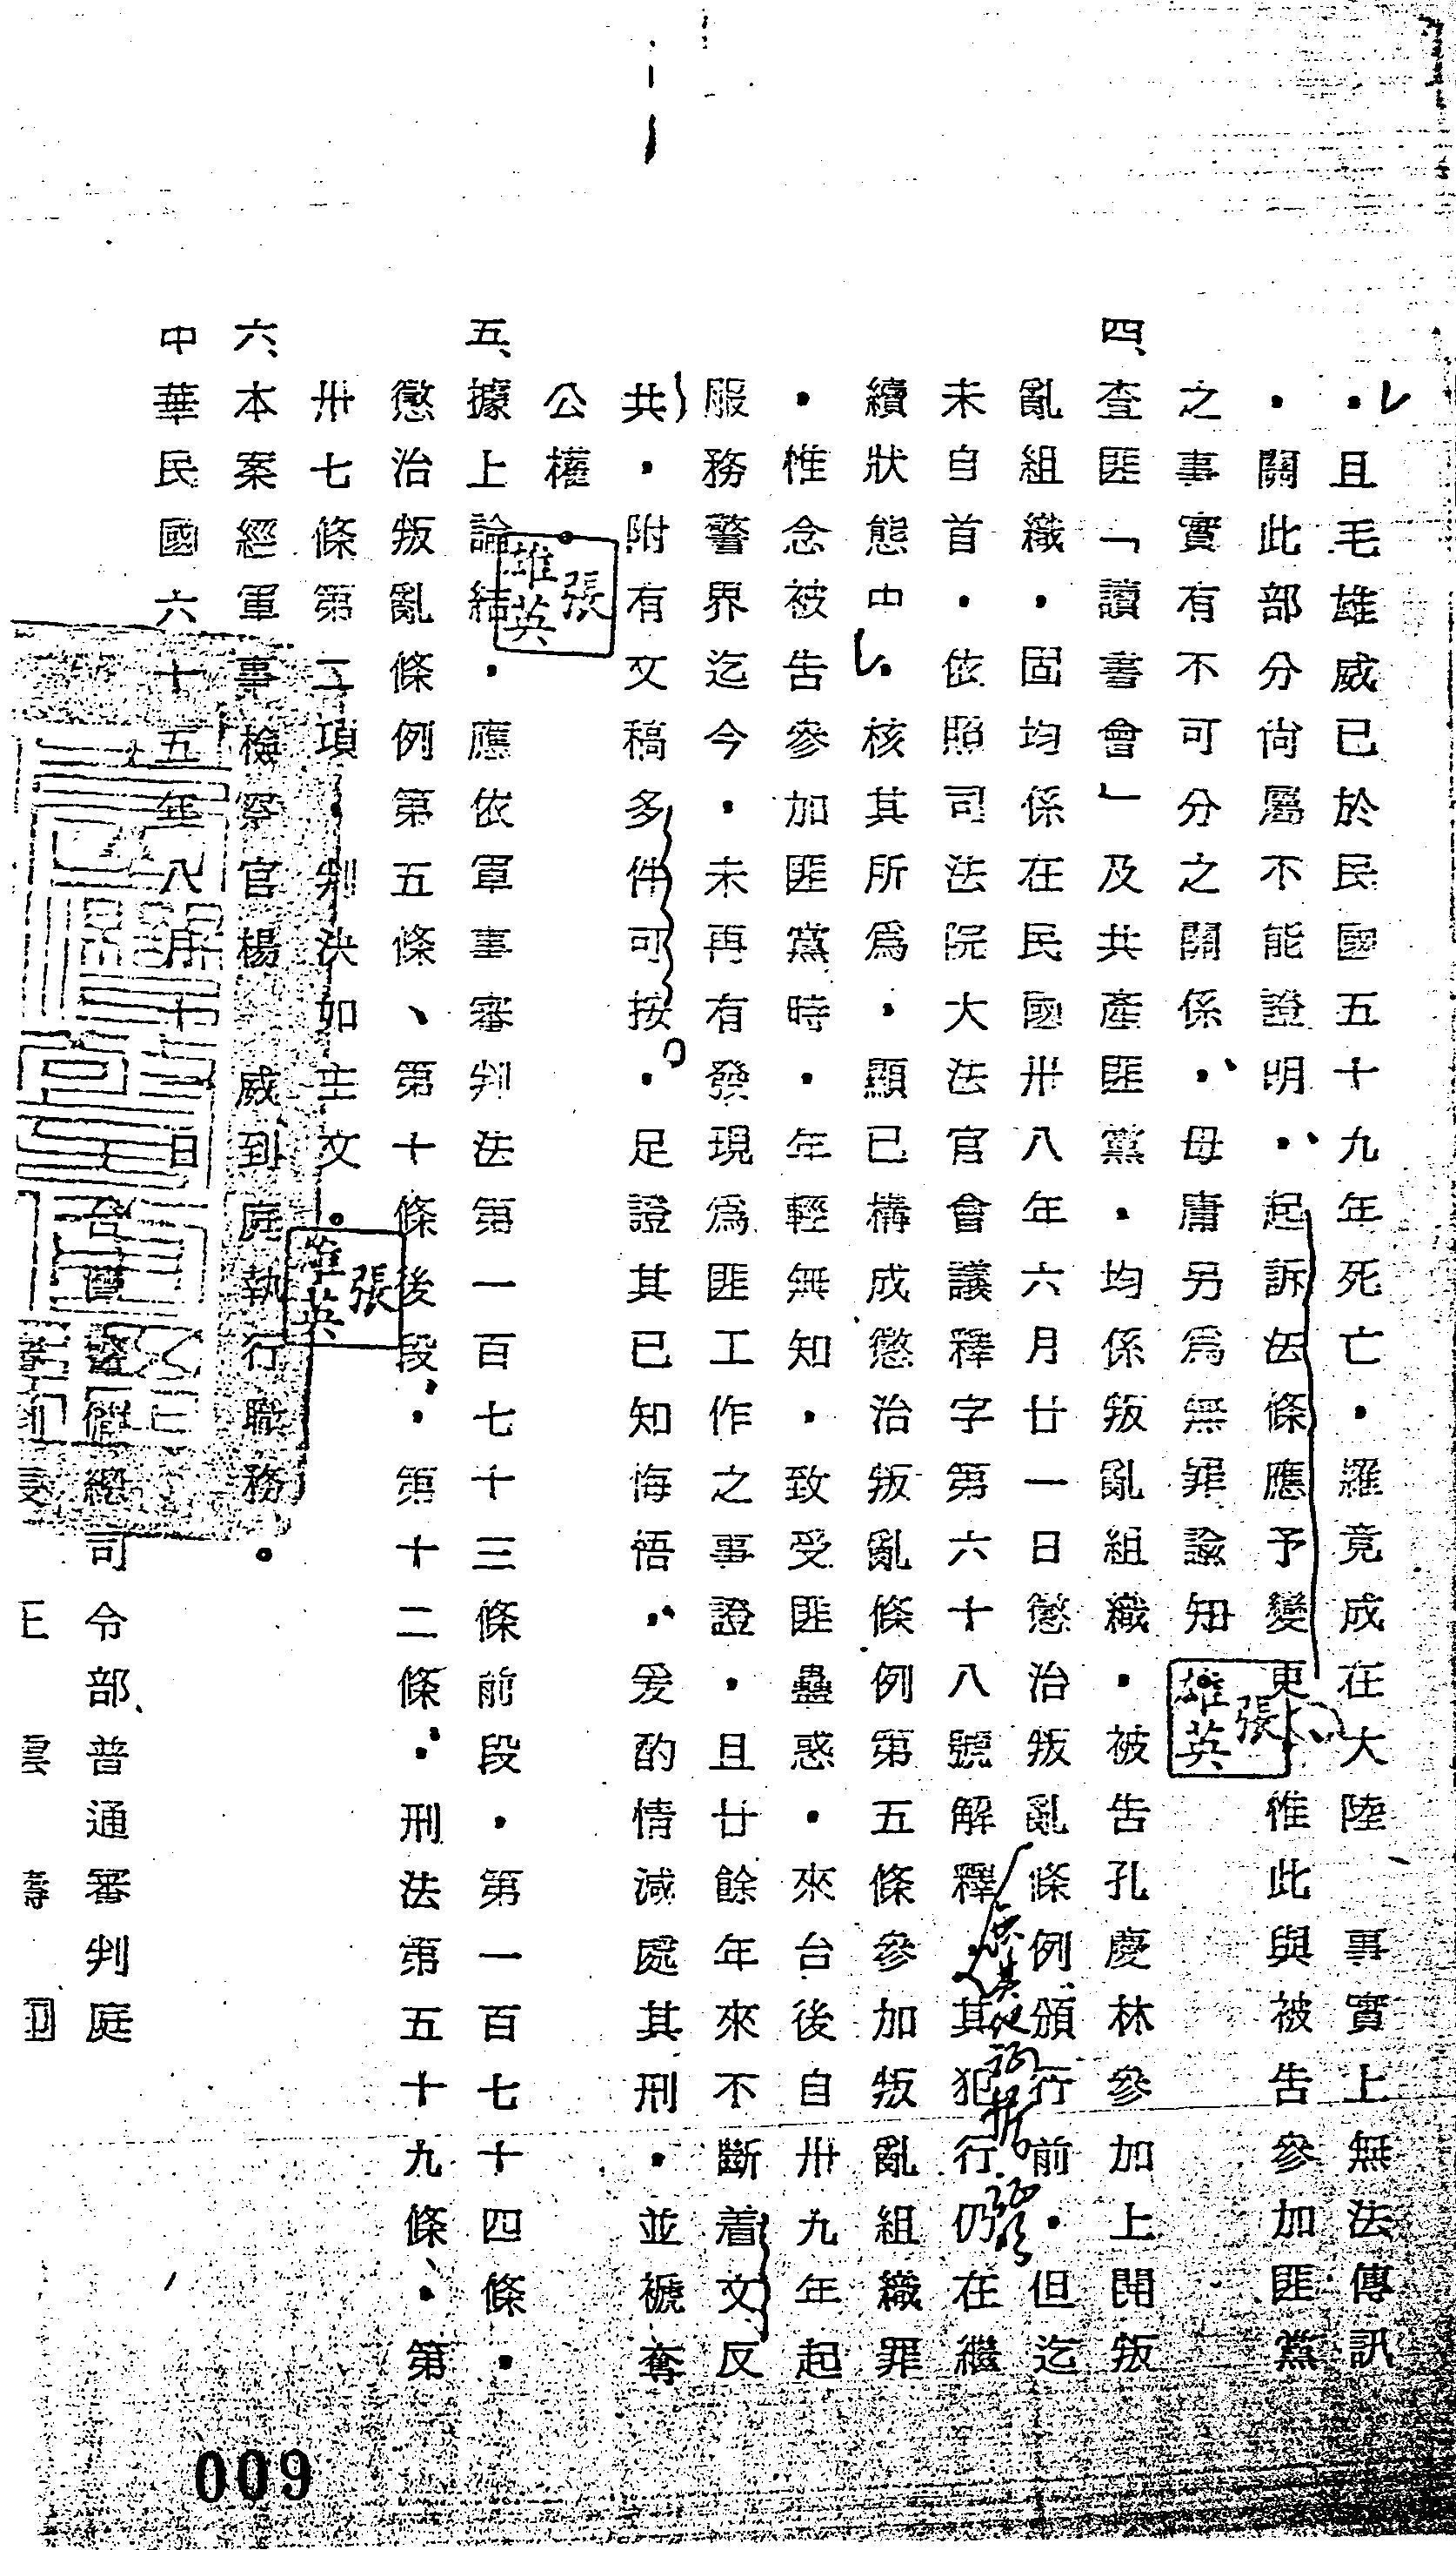 ・且毛雄威已於民國五十九年死亡・羅竟成在大陸事實上無法傳訊
・關此部分尚屬不能證明・起訴法條應予變更・惟此與被告參加匪黨
之事實有不可分之關係・毋庸另爲無罪諭知
四、查匪「讀書會」及共產匪黨・均係叛亂組織・被告孔慶林參加上開叛
亂組織・固均係在民國卅八年六月廿一日懲治叛亂條例頒行前・但迄
未自首・依照司法院大法官會議釋字第六十八號解釋・其犯行仍在繼
續狀態中・核其所爲・顯已構成懲治叛亂條例第五條參加叛亂組織罪
・惟念被告參加匪黨時・年輕無知・致受匪蠱惑・來台後自卅九年起
服務警界迄今・未再有發現爲匪工作之事證・且廿餘年來不斷着文反
共・附有文稿多件可按・足證其已知悔悟・爰酌情減處其刑・並褫奪
公權
五、據上論結・應依軍事審判法第一百七十三條前段・第一百七十四條・
懲治叛亂條例第五條、第十條後段・第十二條・刑法第五十九條、・第
卅七條第二項・判決如主文。
六、本案經軍事檢察官楊威到庭執行職務。
中華民國六十五年八月十日
台灣警備總司令部普通審判庭
張雄英
張雄英
張雄英
009